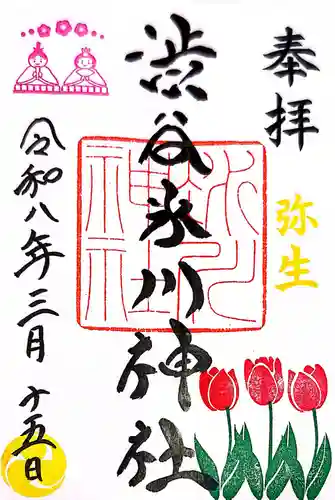 奉拝
弥生
渋谷氷川神社
令和八年三月十五日